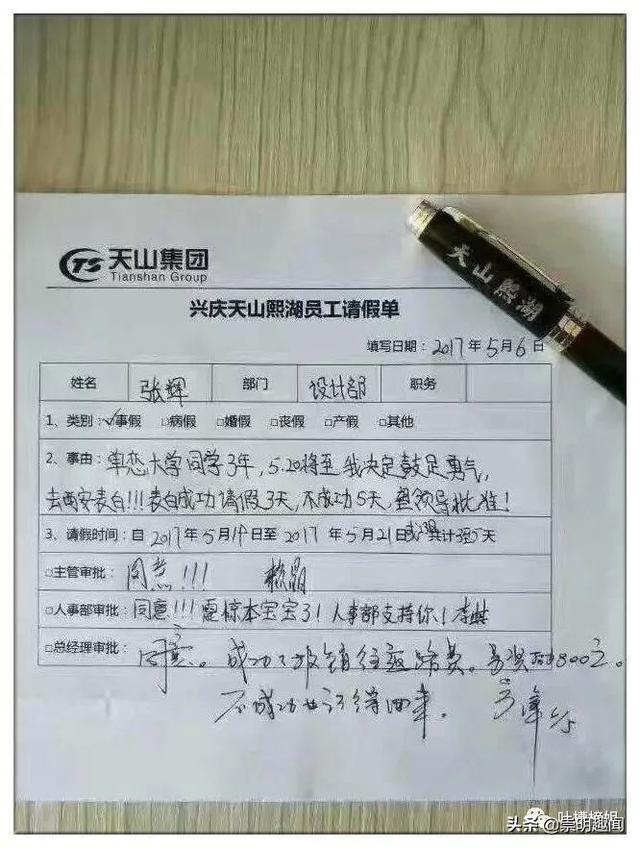 TS 天山集团
Tianshan Group
天山熙湖
兴庆天山熙湖员工请假单
填写日期：2017年5月6日
姓名 张辉 部门 设计部 职务
1、类别：✓事假 □病假 □婚假 □丧假 □产假 □其他
2、事由：单恋大学同学3年，5.20将至 我决定鼓足勇气，
去西安表白!!!表白成功请假3天，不成功5天，望领导批准！
3、请假时间：自2017年5月19日至2017年5月21日 共计3天
□主管审批：同意!!!
□人事部审批：同意!!! 震惊本宝宝了! 人事部支持你!
□总经理审批：同意。成功了报销往返路费。 800元。
不成功也记得回来。
头条 @崇明趣闻